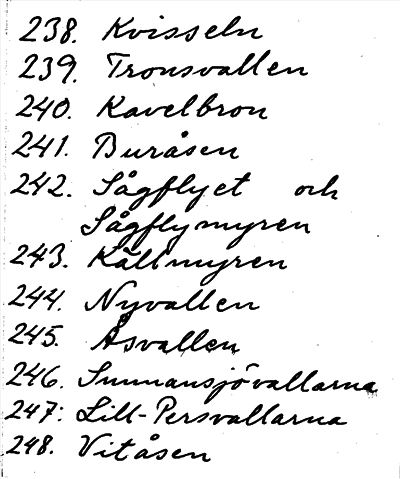 238. Kvisseln
239. Tronsvallen
240. Kavelbron
241. Buråsen
242. Sågflyet och
Sågflymyren
243. Källmyren
244. Nyvallen
245. Åsvallen
246. Sunnansjövallarna
247: Lill-Persvallarna
248. Vitåsen